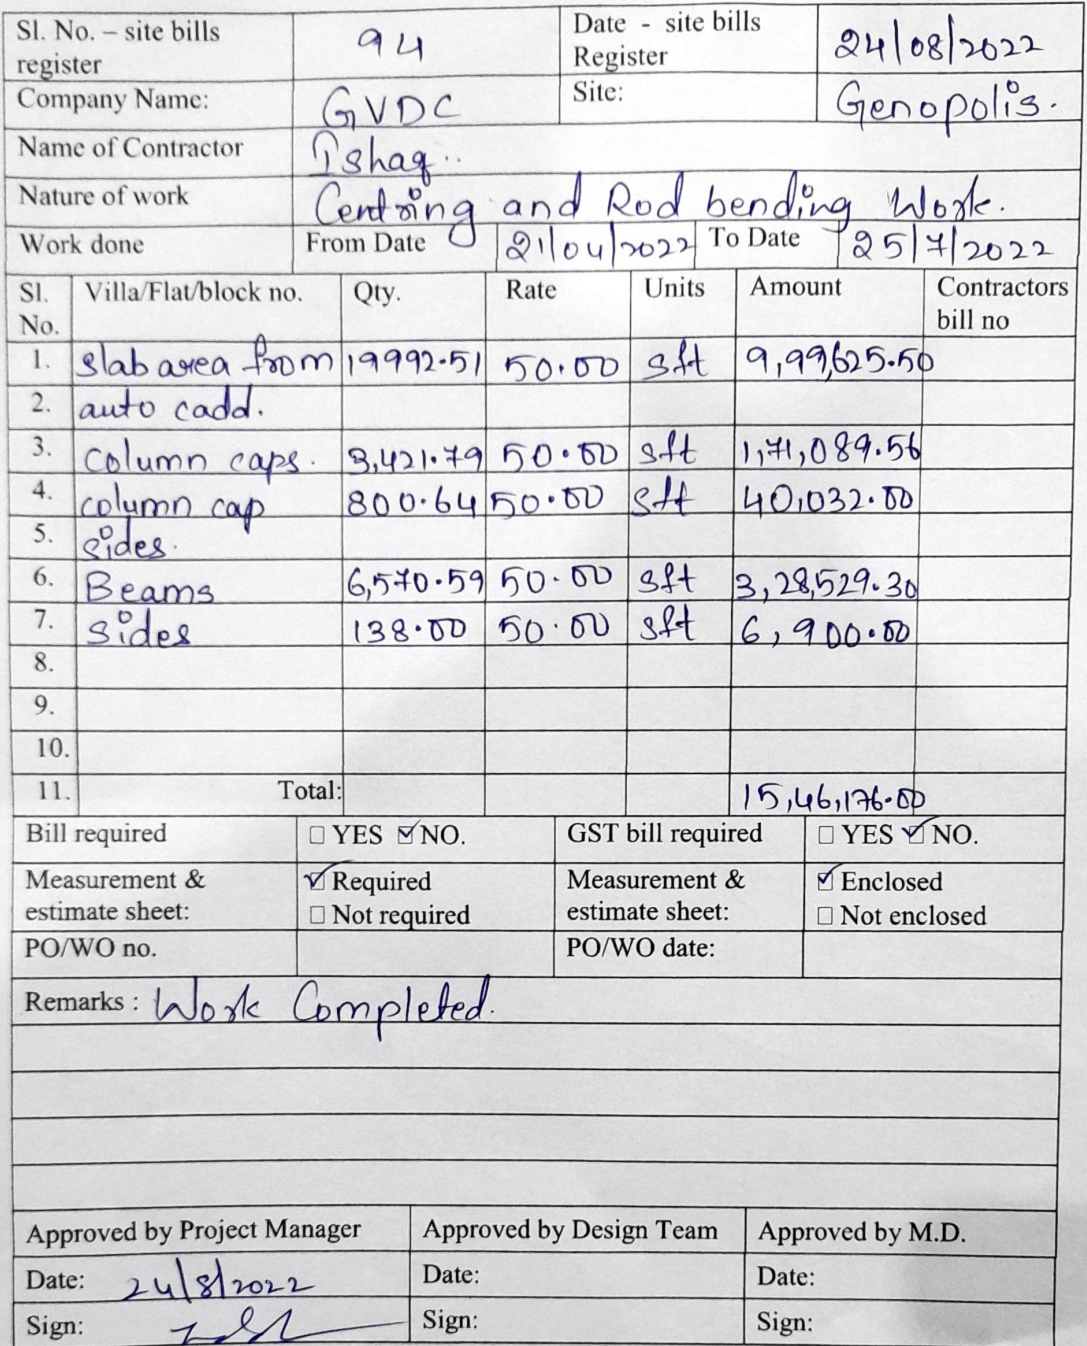 Sl. No. – site bills register 94 Date - site bills Register 24/08/2022
Company Name: GVDC Site: Genopolis.
Name of Contractor Ishaq..
Nature of work Centring and Rod bending Work.
Work done From Date 21/04/2022 To Date 25/7/2022
Sl. No. Villa/Flat/block no. Qty. Rate Units Amount Contractors bill no
1. Slab area from 19992.51 50.00 sft 9,99,625.50
2. auto cadd.
3. column caps. 3,421.79 50.00 sft 1,71,089.56
4. column cap 800.64 50.00 sft 40,032.00
5. sides.
6. Beams 6,570.59 50.00 sft 3,28,529.30
7. sides 138.00 50.00 sft 6,900.00
8.
9.
10.
11. Total: 15,46,176.00
Bill required ☐ YES ☑ NO. GST bill required ☐ YES ☑ NO.
Measurement & estimate sheet: ☑ Required ☐ Not required Measurement & estimate sheet: ☑ Enclosed ☐ Not enclosed
PO/WO no. PO/WO date:
Remarks : Work Completed.
Approved by Project Manager Approved by Design Team Approved by M.D.
Date: 24/8/2022 Date: Date:
Sign: Sign: Sign: